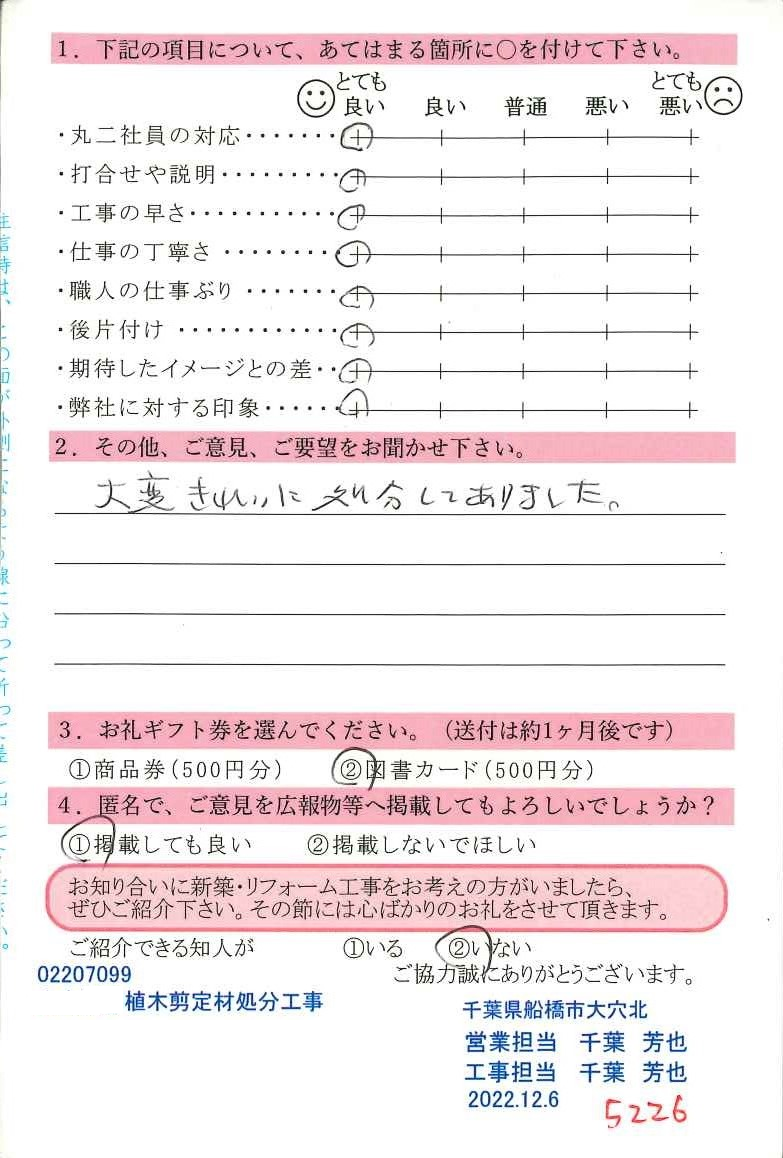 1. 下記の項目について、あてはまる箇所に○を付けて下さい。
とても良い 良い 普通 悪い とても悪い
・丸二社員の対応・・・・・・・
・打合せや説明・・・・・・・・・
・工事の早さ・・・・・・・・・・・
・仕事の丁寧さ ・・・・・・・・
・職人の仕事ぶり ・・・・・・・
・後片付け ・・・・・・・・・・・・
・期待したイメージとの差・・
・弊社に対する印象・・・・・・
2. その他、ご意見、ご要望をお聞かせ下さい。
大変きれいに処分してありました。
3. お礼ギフト券を選んでください。(送付は約1ヶ月後です)
①商品券(500円分) ②図書カード(500円分)
4. 匿名で、ご意見を広報物等へ掲載してもよろしいでしょうか?
①掲載しても良い ②掲載しないでほしい
お知り合いに新築・リフォーム工事をお考えの方がいましたら、
ぜひご紹介下さい。その節には心ばかりのお礼をさせて頂きます。
ご紹介できる知人が ①いる ②いない
02207099
ご協力誠にありがとうございます。
植木剪定材処分工事
千葉県船橋市大穴北
営業担当 千葉 芳也
工事担当 千葉 芳也
2022.12.6
5226